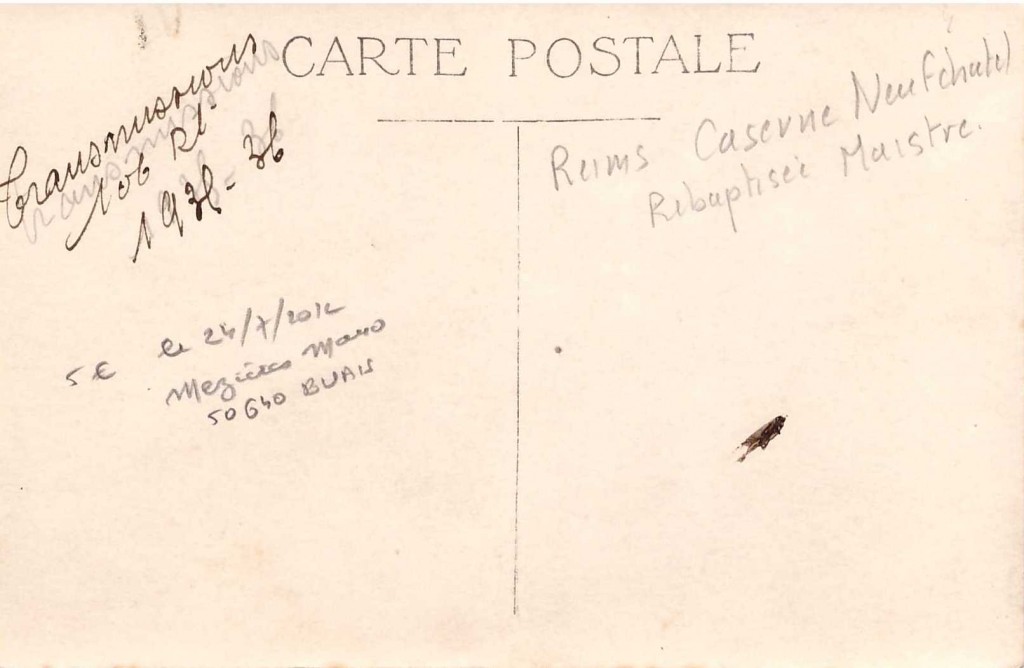 CARTE POSTALE
Transmissions
106 RI
1935-36
Reims Caserne Neufchatel
Rebaptisée Maistre.
5€ le 24/7/2012
Mezières
50640 BUAIS